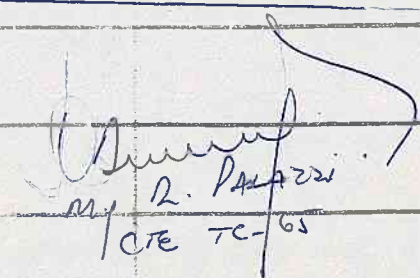 My R. PALAZZI
CTE TC-65